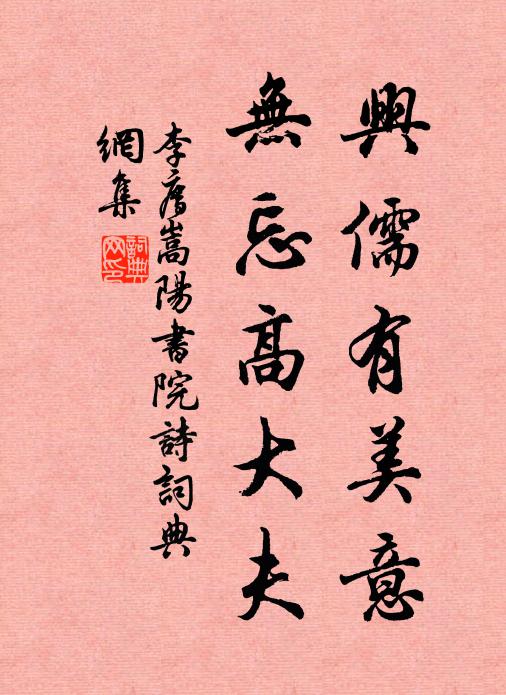 興儒有美意
無忘高大夫
李廌嵩陽書院詩詞典
網集
詞典
网印